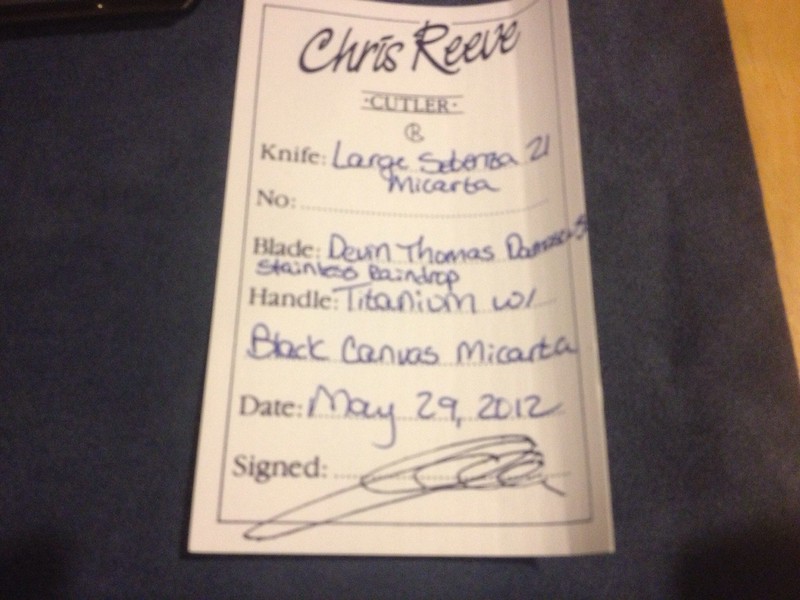 Chris Reeve
·CUTLER·
Knife: Large Sebenza 21
Micarta
No:
Blade: Devin Thomas Damascus
Stainless Raindrop
Handle: Titanium w/
Black Canvas Micarta
Date: May 29, 2012
Signed: